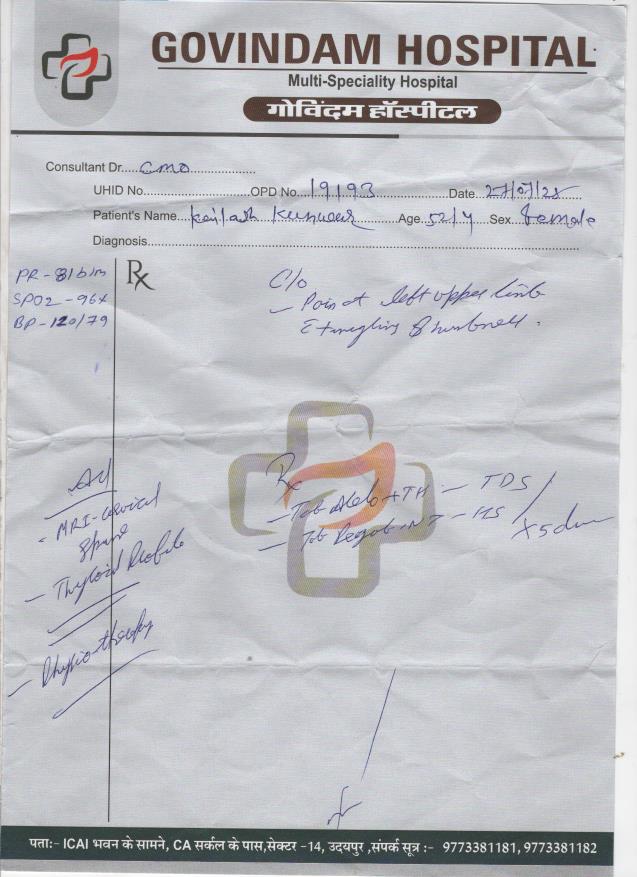 GOVINDAM HOSPITAL
Multi-Speciality Hospital
गोविंदम हॉस्पीटल
Consultant Dr....CMO....................
UHID No...........................OPD No...19193..................Date...27/07/25.........
Patient's Name...Kailash Kunwar...........Age..52/Y....Sex...female
Diagnosis.......................................................................................................
PR - 81b/m
SPO2 - 96%
BP - 120/79
Rx
C/o
- Pain at left upper limb
& numbness.
Adv
- MRI - cervical
Spine
- Thyroid Profile
- Physiotherapy
Rx
- Tab + TH - TDS
- Tab NT - HS
x 5 days
पता:- ICAI भवन के सामने, CA सर्कल के पास,सेक्टर -14, उदयपुर ,संपर्क सूत्र :- 9773381181, 9773381182